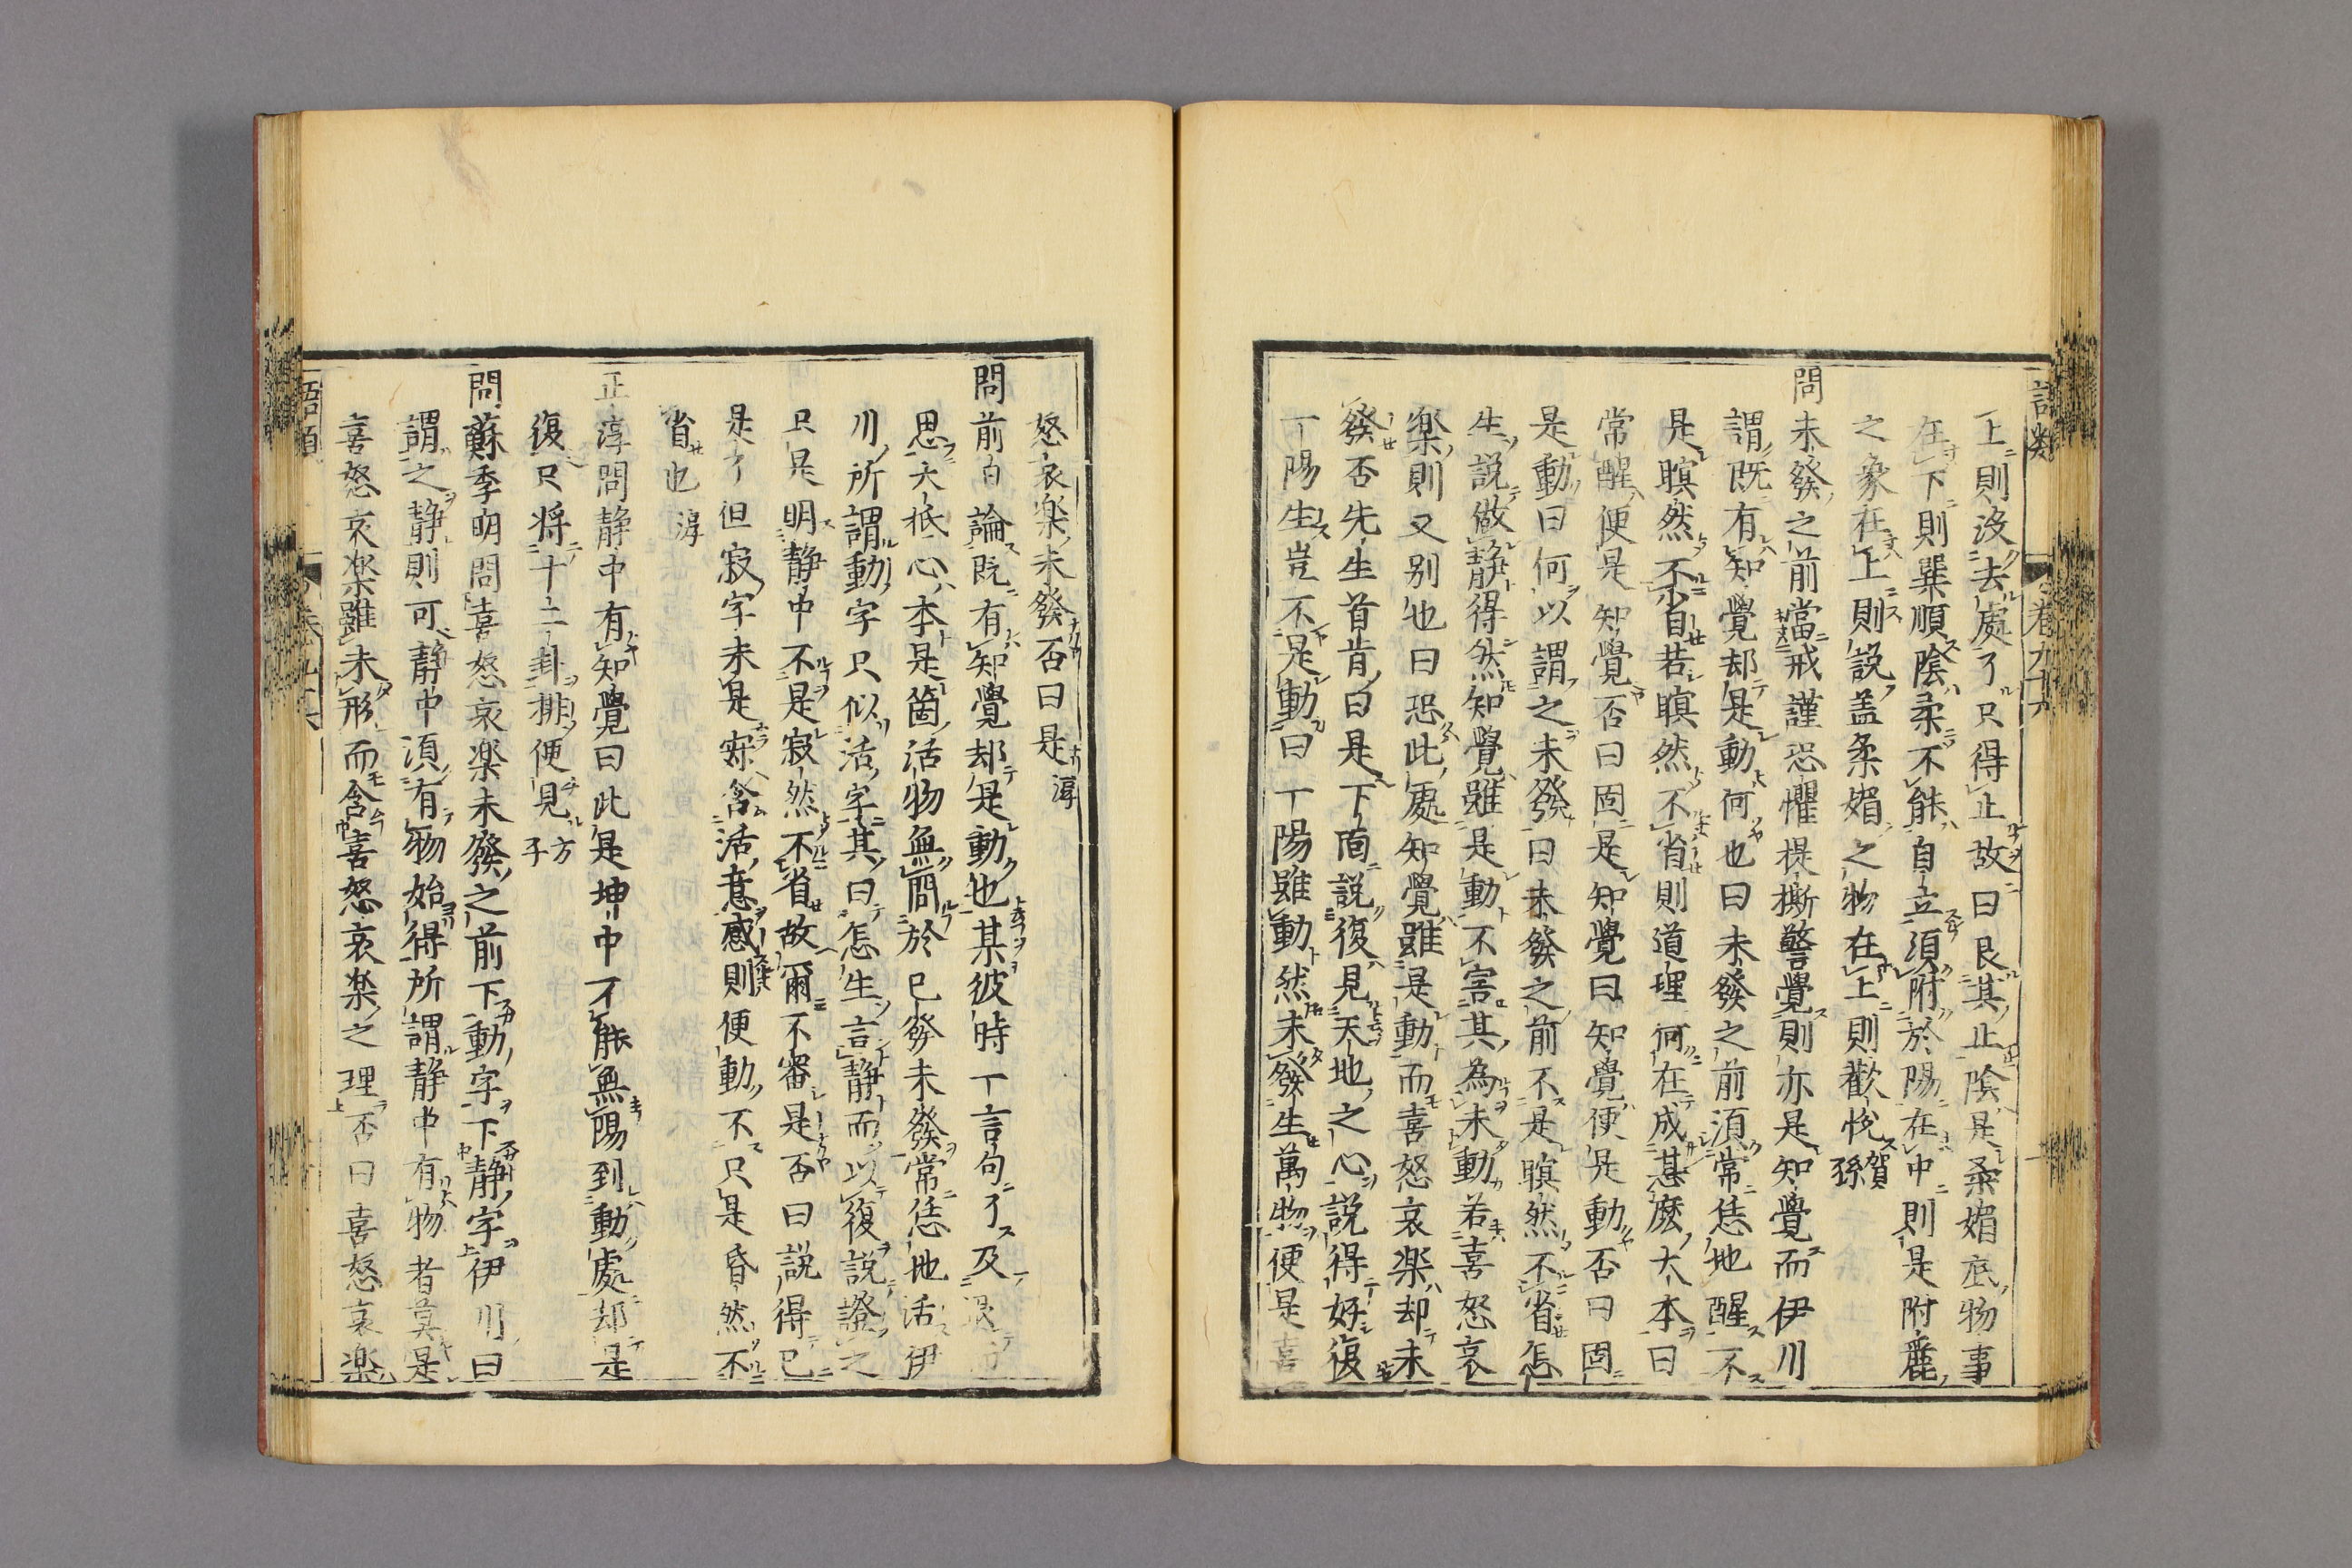 上則没去處了只得止故曰艮其止陰是柔媚底物事
在下則巽順陰柔不能自立須附於陽在中則是附麗
之象在上則說盖柔媚之物在上則歡悅賀孫
問未發之前當戒謹恐懼提撕警覺則亦是知覺而伊川
謂既有知覺却是動何也曰未發之前須常恁地醒不
是瞑然不省若瞑然不省則道理何在成甚麽大本曰
常醒便是知覺否曰固是知覺曰知覺便是動否曰固
是動曰何以謂之未發曰未發之前不是瞑然不省怎
生說做靜得然知覺雖是動不害其為未動若喜怒哀
楽則又别也曰恐此處知覺雖是動而喜怒哀楽却未
發否先生首肯曰是下面說復見天地之心說得好復
一陽生豈不是動曰一陽雖動然未發生萬物便是喜
怒哀楽未發否曰是淳
問前日論既有知覺却是動也某彼時一言句了及退
思大抵心本是箇活物無間於已發未發常恁地活伊
川所謂動字只似活字其曰怎生言靜而以復說證之
只是明靜中不是寂然不省故爾不審是否曰說得已
是了但寂字未是寂含活意感則便動不只是昏然不
省也淳
正淳問静中有知覺曰此是坤中不能無陽到動處却是
復只将十二卦排便見方子
問蘇季明問喜怒哀楽未發之前下動字下静字伊川曰
謂之静則可静中須有物始得所謂静中有物者莫是
喜怒哀楽雖未形而含喜怒哀楽之理否曰喜怒哀楽
語類
卷九十六